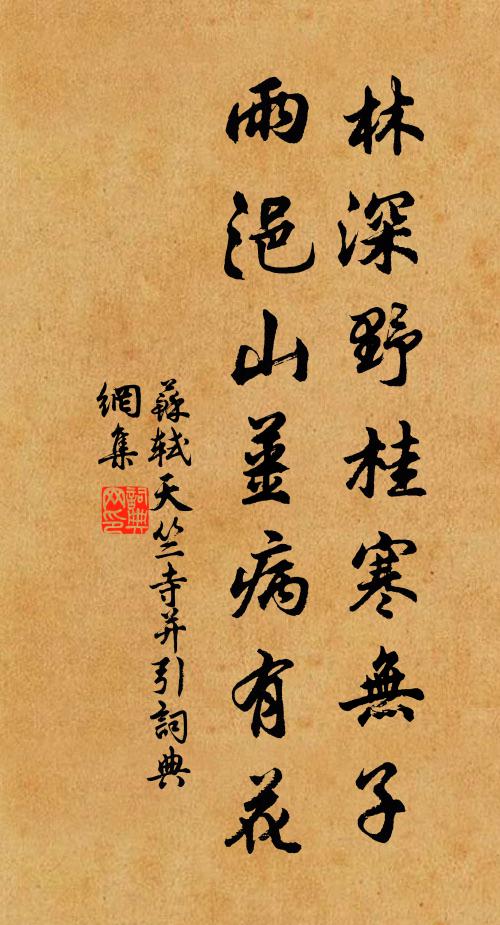 林深野桂寒無子
雨浥山薑病有花
蘇軾天竺寺并引詞典
網集
詞典
网印